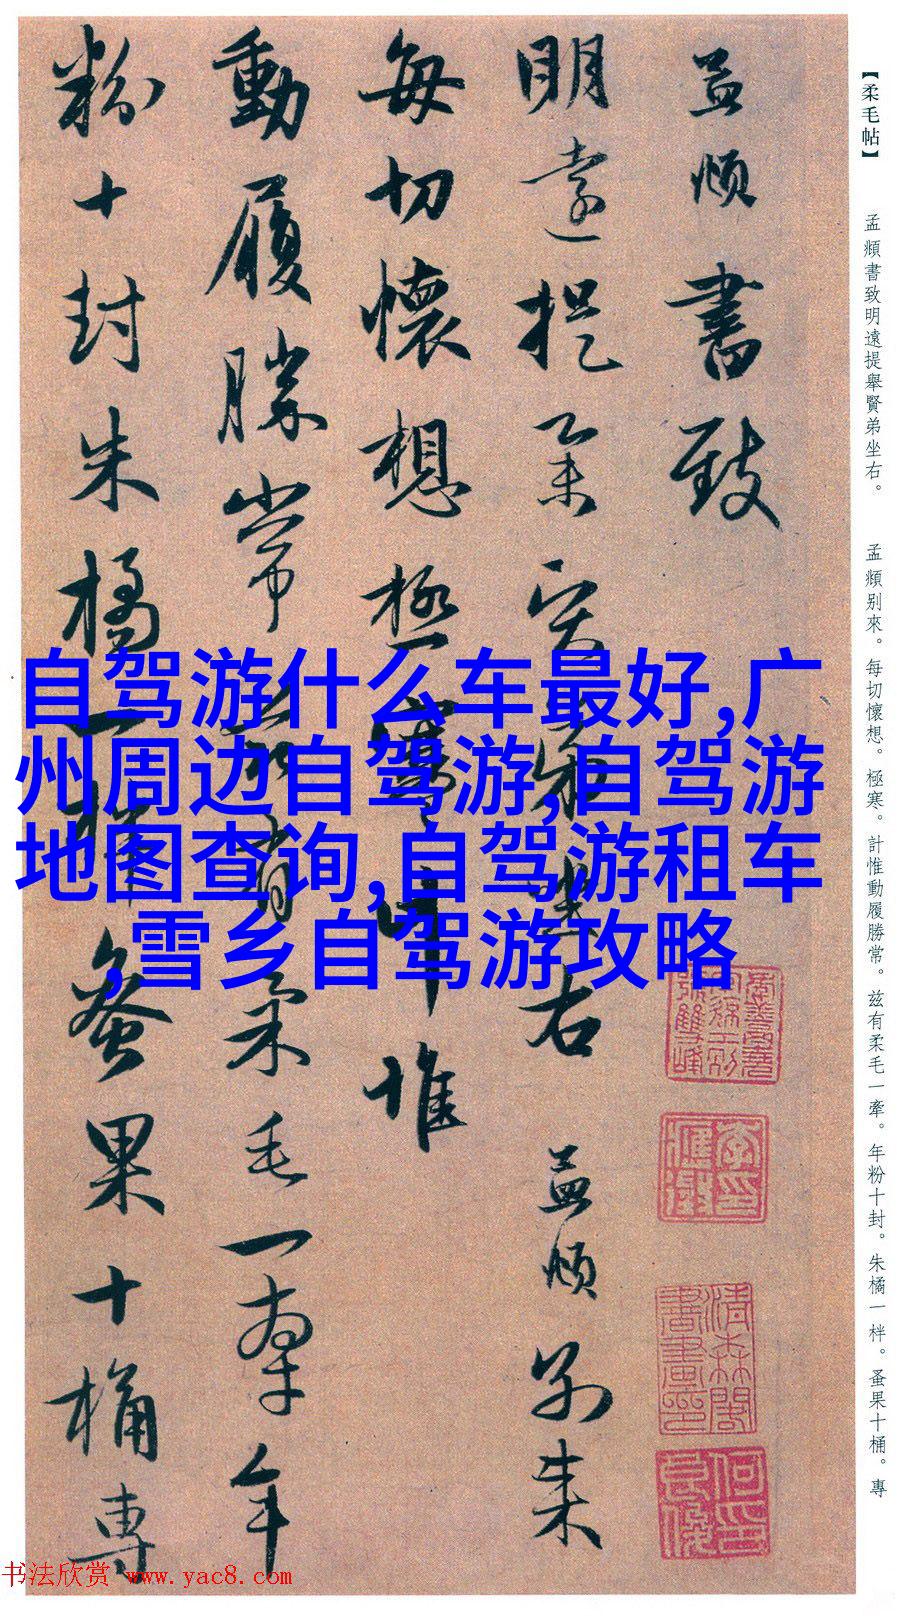 【柔毛帖】
孟頫書致明遠提舉賢弟坐右。
孟頫别來。每切懷想。極寒。計惟動履勝常。兹有柔毛一牽。年粉十封。朱橘一柈。蚤果十桶。專
孟頫書致
明遠提舉賢弟坐右
孟頫别来
每切懷想極寒計惟
動履勝常兹有柔毛一牽年
粉十封朱橘一柈蚤果十桶專
自驾游什么车最好,广
州周边自驾游,自驾游
地图查询,自驾游租车
,雪乡自驾游攻略
书法欣赏 www.yac8.com